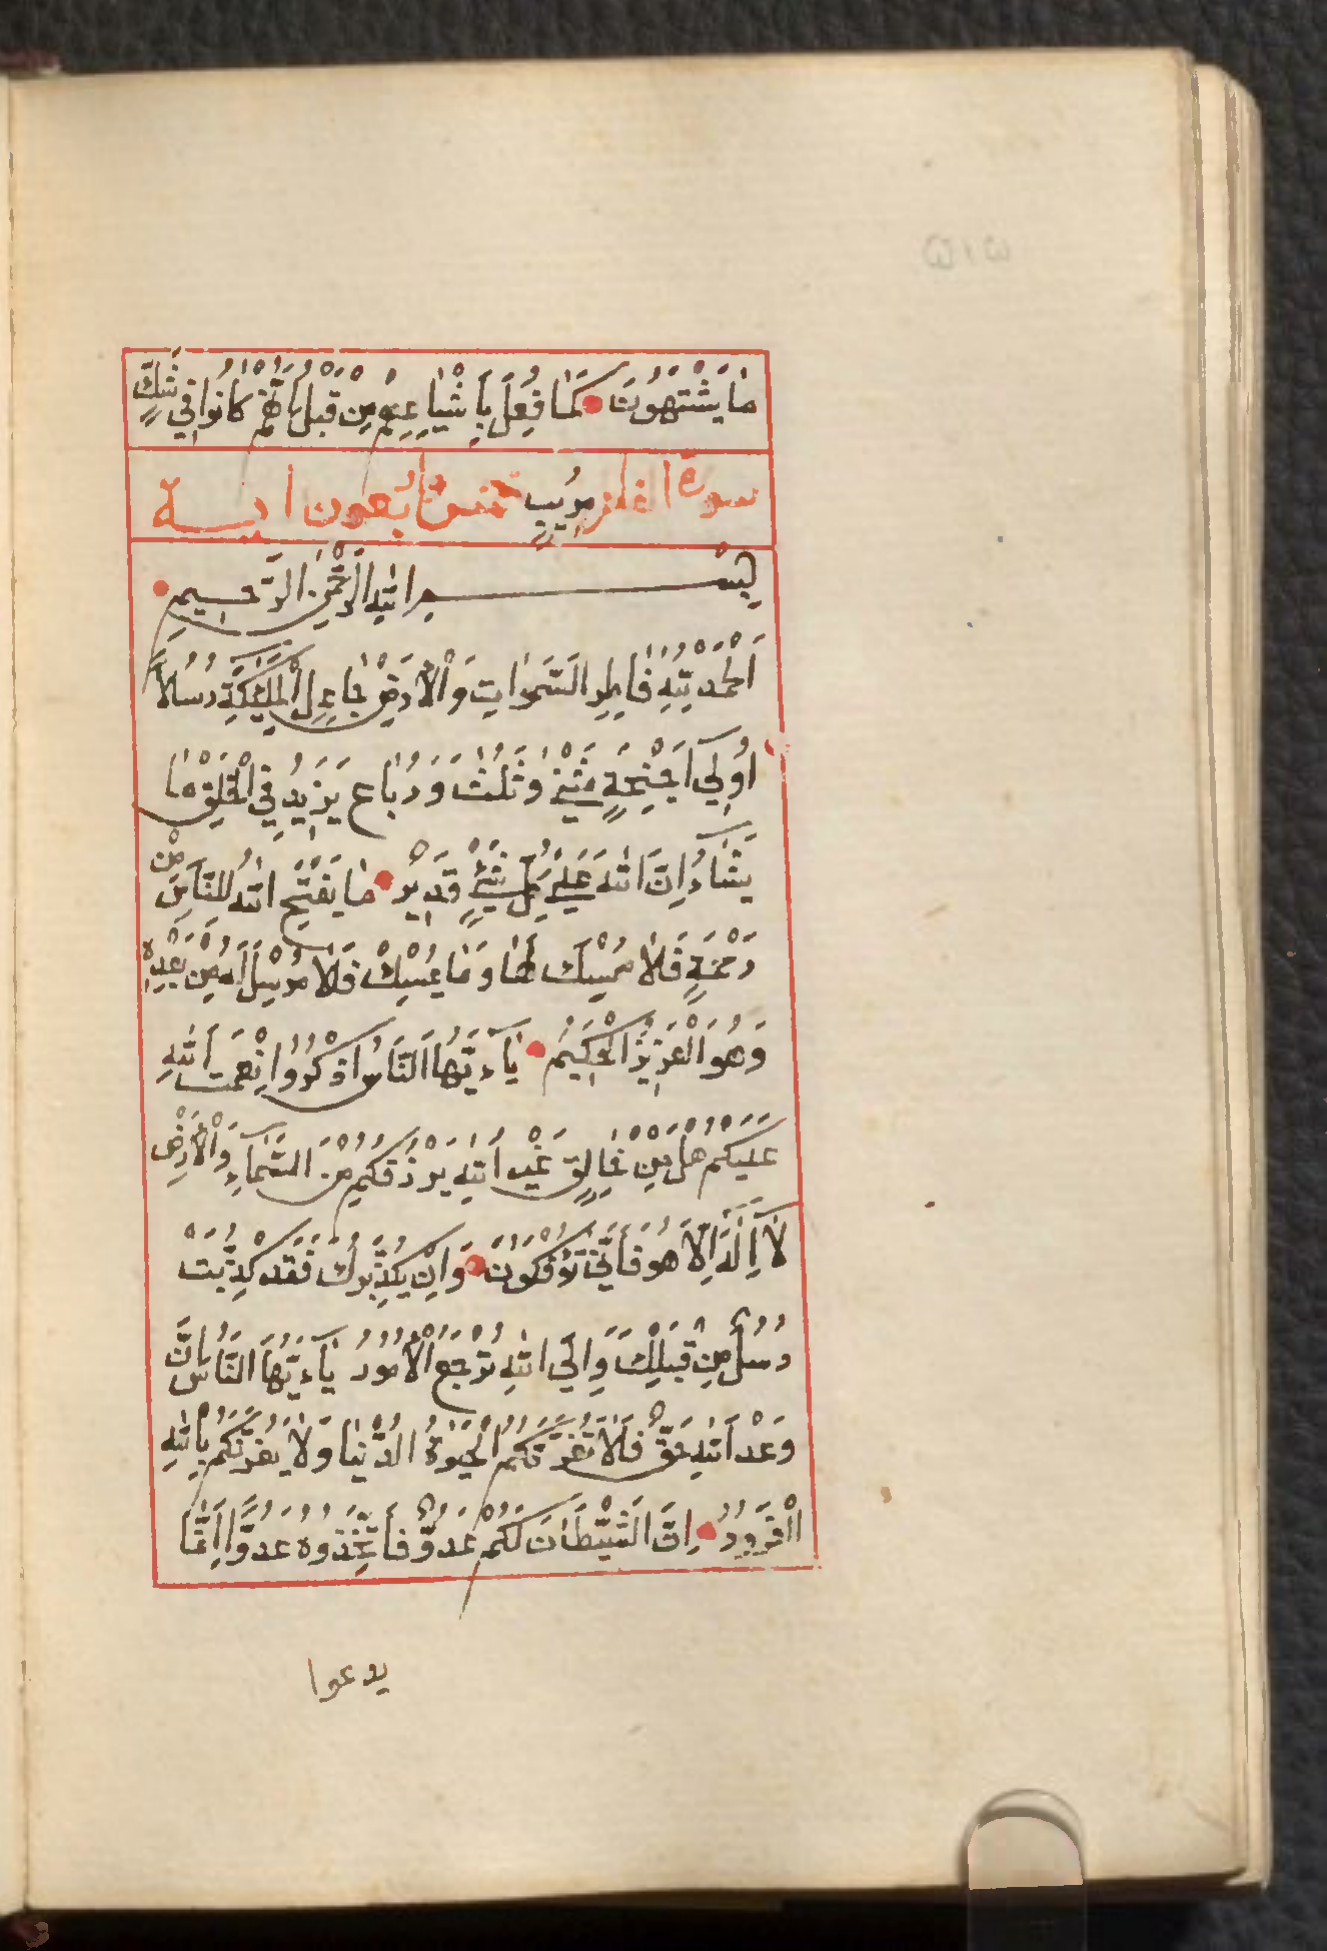 مَا يَشْتَهُونَ كَمَا فُعِلَ بِأَشْيَاعِهِمْ مِنْ قَبْلُ إِنَّهُمْ كَانُوا فِي شَكٍّ
مُرِيبٍ سورة الفاطر خمس واربعون اية
بِسْمِ اللهِ الرَّحْمٰنِ الرَّحِيمِ
اَلْحَمْدُ لِلّٰهِ فَاطِرِ السَّمٰوَاتِ وَالْأَرْضِ جَاعِلِ الْمَلٰئِكَةِ رُسُلاً
اُولِي اَجْنِحَةٍ مَثْنٰى وَثُلٰثَ وَرُبَاعَ يَزِيدُ فِي الْخَلْقِ مَا
يَشَاءُ اِنَّ اللهَ عَلٰى كُلِّ شَيْءٍ قَدِيرٌ مَا يَفْتَحِ اللهُ لِلنَّاسِ مِنْ
رَحْمَةٍ فَلَا مُمْسِكَ لَهَا وَمَا يُمْسِكْ فَلَا مُرْسِلَ لَهُ مِنْ بَعْدِهِ
وَهُوَ الْعَزِيزُ الْحَكِيمُ يَآءَيُّهَا النَّاسُ اذْكُرُوا نِعْمَتَ اللهِ
عَلَيْكُمْ هَلْ مِنْ خَالِقٍ غَيْرُ اللهِ يَرْزُقُكُمْ مِنَ السَّمَآءِ وَالْأَرْضِ
لَآ اِلٰهَ اِلَّا هُوَ فَأَنّٰى تُؤْفَكُونَ وَاِنْ يُكَذِّبُوكَ فَقَدْ كُذِّبَتْ
رُسُلٌ مِنْ قَبْلِكَ وَاِلَى اللهِ تُرْجَعُ الْأُمُورُ يَآءَيُّهَا النَّاسُ اِنَّ
وَعْدَ اللهِ حَقٌّ فَلَا تَغُرَّنَّكُمُ الْحَيٰوةُ الدُّنْيَا وَلَا يَغُرَّنَّكُمْ بِاللهِ
الْغَرُورُ اِنَّ الشَّيْطَانَ لَكُمْ عَدُوٌّ فَاتَّخِذُوهُ عَدُوًّا اِنَّمَا
يدعوا